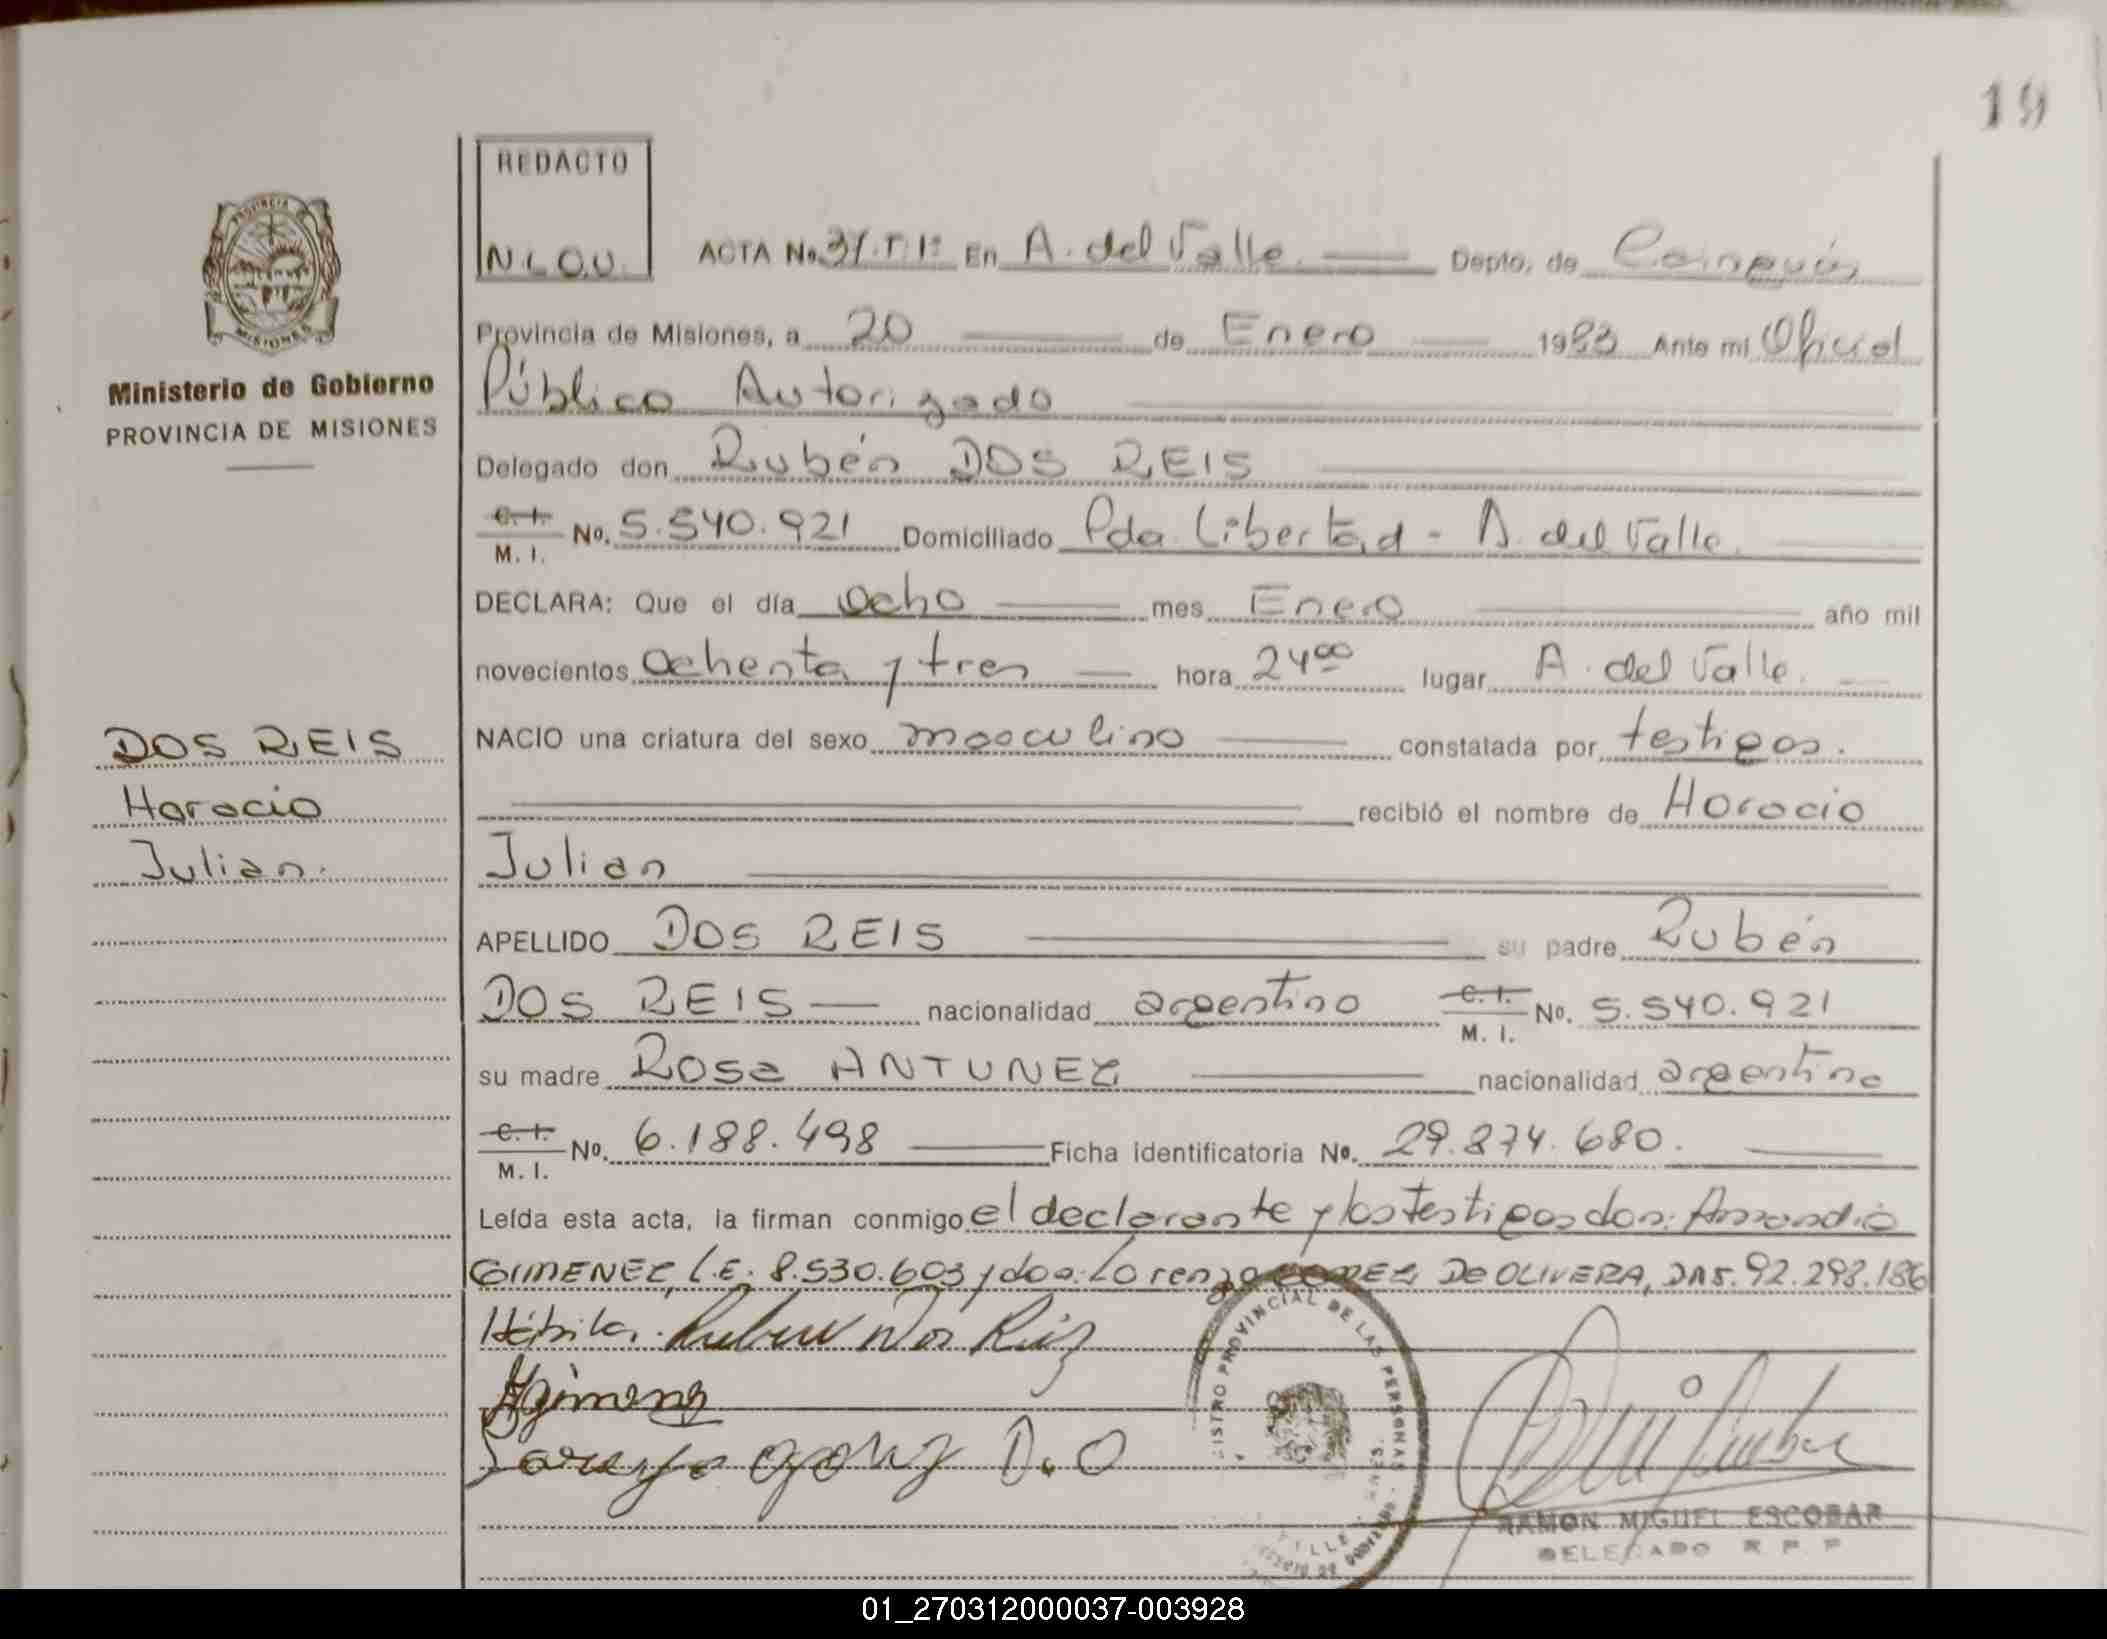 19
REDACTO
N.L.O.U.
ACTA No. 31.T.1º En A. del Valle Depto. de Cainguás
PROVINCIA DE MISIONES
Ministerio de Gobierno
PROVINCIA DE MISIONES
Provincia de Misiones, a 20 de Enero 1983 Ante mi Oficial
Público Autorizado
Delegado don Rubén DOS REIS
C. I. M. I. No. 5.540.921 Domiciliado Pda. Libertad - A. del Valle.
DECLARA: Que el día ocho mes Enero año mil
novecientos ochenta y tres hora 24⁰⁰ lugar A. del Valle.
DOS REIS
Horacio
Julian.
NACIO una criatura del sexo masculino constatada por testigos.
recibió el nombre de Horacio
Julian
APELLIDO DOS REIS su padre Rubén
DOS REIS nacionalidad argentino C. I. M. I. No. 5.540.921
su madre Rosa ANTUNEZ nacionalidad argentina
C. I. M. I. No. 6.188.498 Ficha identificatoria No. 29.874.680.
Leída esta acta, la firman conmigo el declarante y los testigos don: Amandio
GIMENEZ, L.E. 8.530.603 y don: Lorenzo GOMEZ DE OLIVERA, DNI. 92.298.186
Hábiles.
REGISTRO PROVINCIAL DE LAS PERSONAS
RAMON MIGUEL ESCOBAR
DELEGADO R. P. P.
01_270312000037-003928